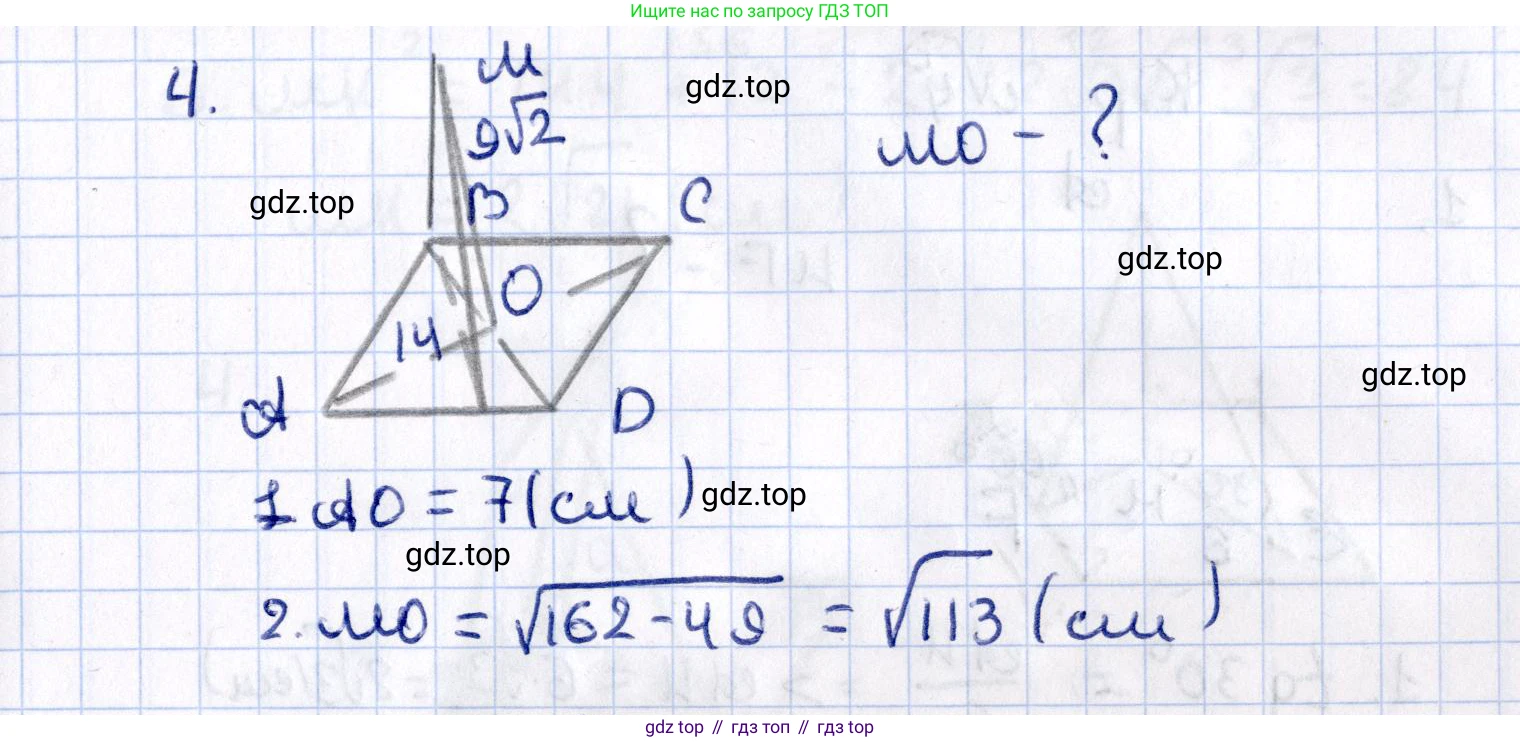 Ищите нас по запросу ГДЗ ТОП
4.
М
9√2
gdz.top
МО - ?
gdz.top
В
С
О
gdz.top
14
gdz.top
А
D
1 АО = 7 (см)
gdz.top
gdz.top
2. МО = √162-49 = √113 (см)
gdz.top // гдз топ // гдз top